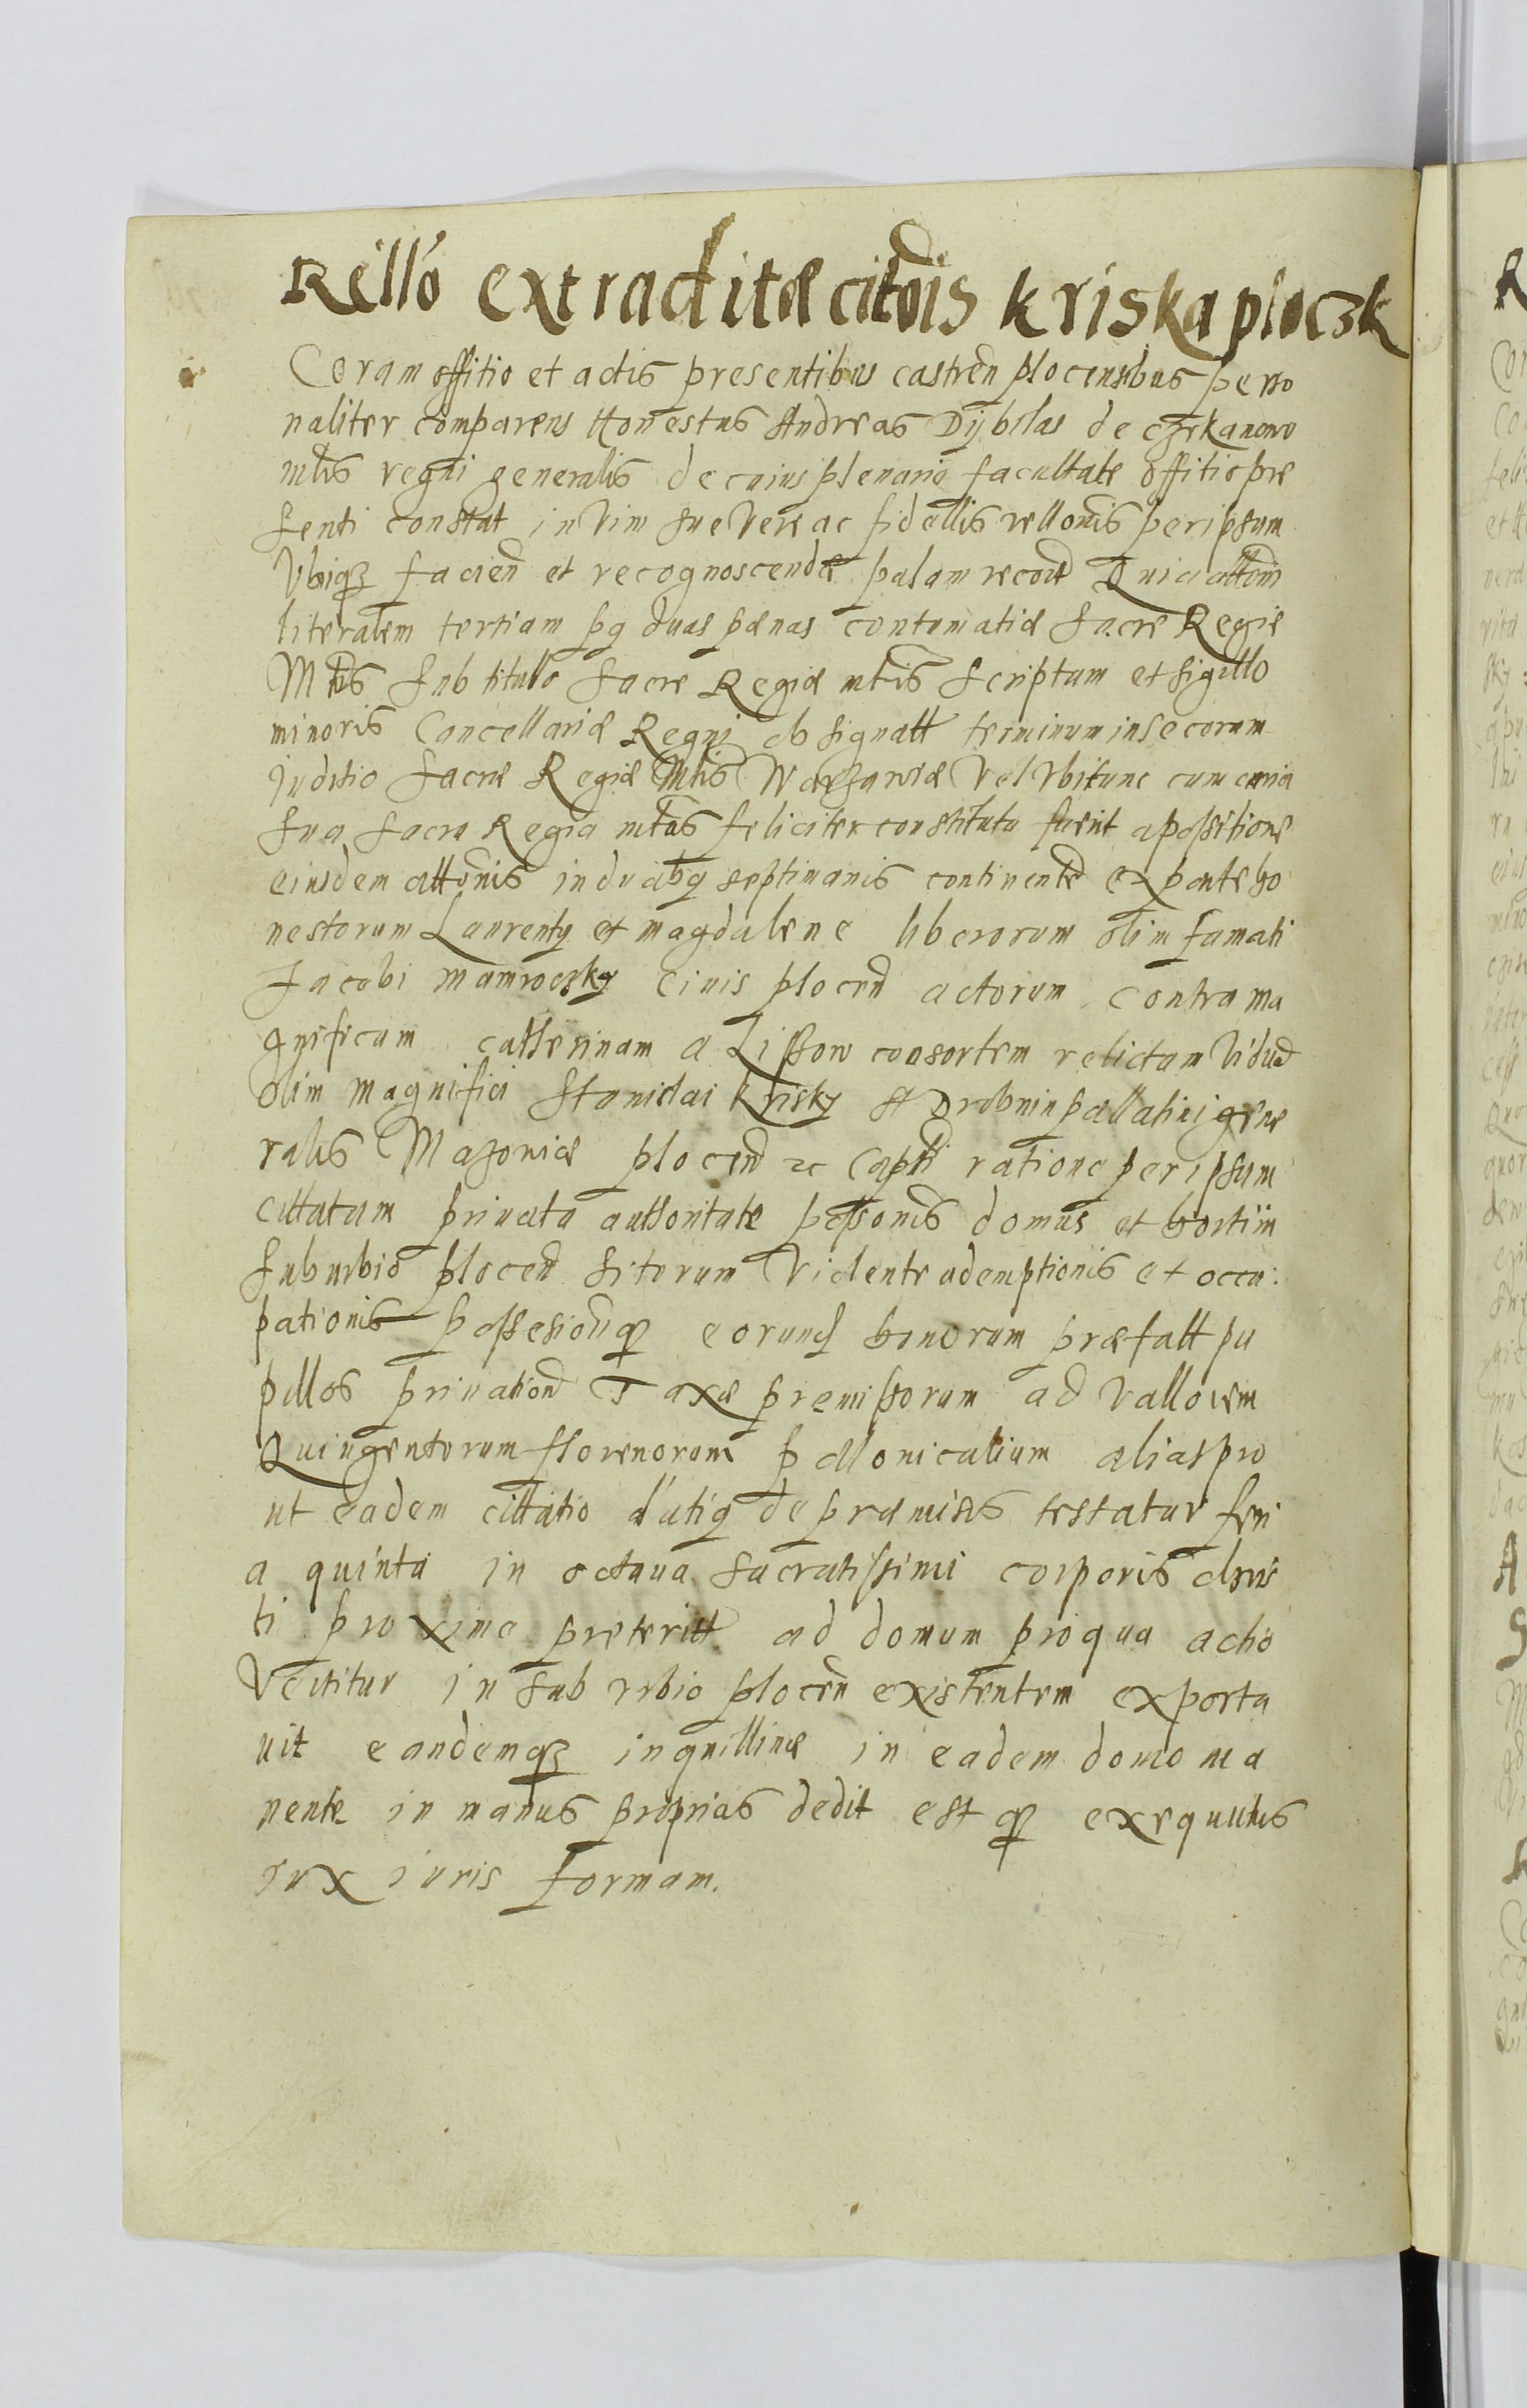 Rello extraditæ citõnis kriska ploczk
Coram offitio et actis presentibus castren plocensibus perso
naliter comparens Honestus Andreas Dijbilas de czekanowo
mtris regni generalis de cuius plenario facultate offitio pre
senti constat in Vim sue Vere ac fidellis rellonis per ipsum
Vbiq3 facien et recognoscendæ palam recoũt Quia cittõm
literalem tertiam pq duas pænas contumatiæ sacre Regie
Mtis sub titulo sacre Regiæ mtis scriptum et sigillo
minoris Cancellariæ Regni obsignatt terminum in se coram
Juditio sacræ Regiæ Mtis Warsawiæ Vel Vbi tunc cum curia
sua sacra Regia mtas feliciter constituta fuerit a positione
eiusdem cittõnis in duabq septimanis continente ex parte ho
nestorum Laurentij et magdalene liberorum olim famati
Jacobi mamroczky civis plocen actorum contra ma
gnificam catherinam a Lissow consortem relictam Viduã
olim magnifici stanislai krisky A Drobnin pallatini gene
ralis Mazoviæ plocen rc Capti ratione per ipsum
cittatam privata authoritate possonis domus et horti in
suburbio plocen sitorum Violente ademptionis et occu:
pationis possesioniq3 eorund bonorum præfatt pu
pillos privationis Taxæ premissorum ad vallorem
Quingentorum florenorum pollonicalium alias pro
ut eadem cittatio latiq de præmisis testatur feri
a quinta in octava sacratissimi corporis chris
ti proxime preteritt ad domum pro qua actio
Vertitur in suburbio plocen existentem exporta
uit eandemq3 inquillinæ in eadem domo ma
nente in manus proprias dedit est q3 exequutus
iux iuris formam.